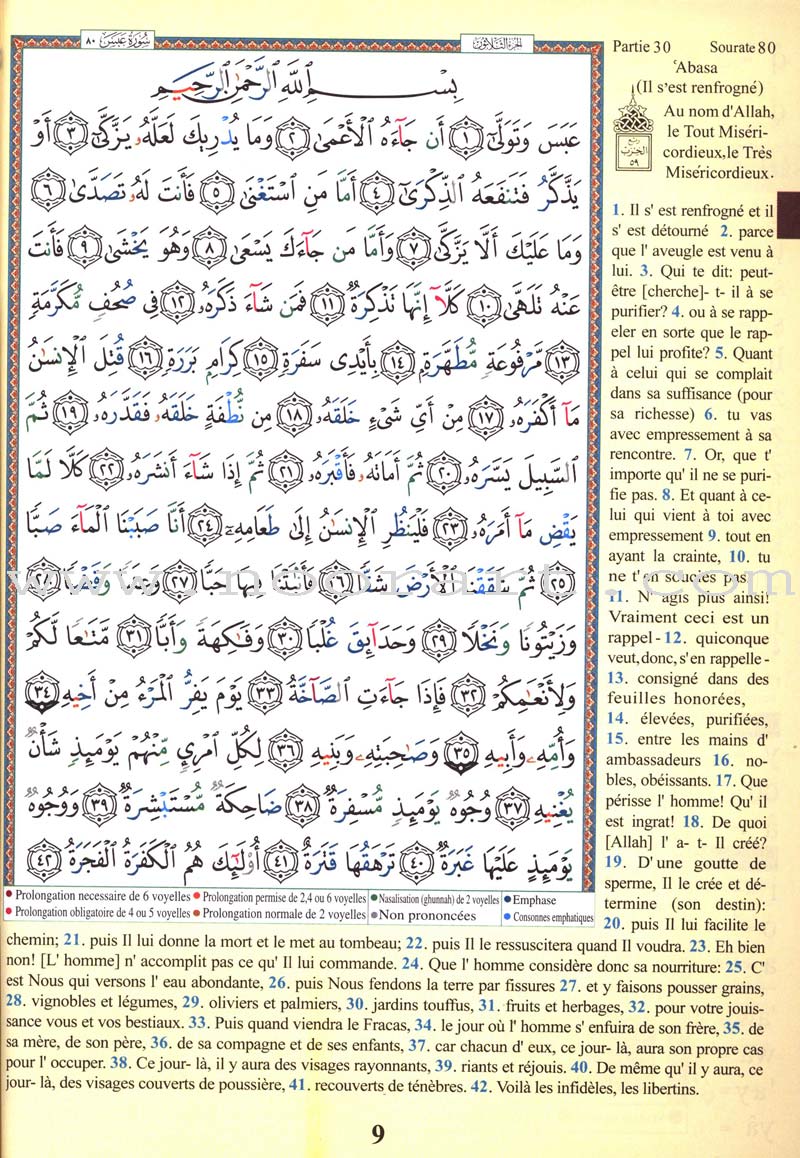 سُورَةُ عَبَسَ ٨٠
الجزء الثلاثون
بِسْمِ اللَّهِ الرَّحْمَٰنِ الرَّحِيمِ
عَبَسَ وَتَوَلَّىٰٓ ١ أَن جَآءَهُ ٱلْأَعْمَىٰ ٢ وَمَا يُدْرِيكَ لَعَلَّهُۥ يَزَّكَّىٰٓ ٣ أَوْ
يَذَّكَّرُ فَتَنفَعَهُ ٱلذِّكْرَىٰٓ ٤ أَمَّا مَنِ ٱسْتَغْنَىٰ ٥ فَأَنتَ لَهُۥ تَصَدَّىٰ ٦
وَمَا عَلَيْكَ أَلَّا يَزَّكَّىٰ ٧ وَأَمَّا مَن جَآءَكَ يَسْعَىٰ ٨ وَهُوَ يَخْشَىٰ ٩ فَأَنتَ
عَنْهُ تَلَهَّىٰ ١٠ كَلَّآ إِنَّهَا تَذْكِرَةٌ ١١ فَمَن شَآءَ ذَكَرَهُۥ ١٢ فِى صُحُفٍ مُّكَرَّمَةٍ
١٣ مَّرْفُوعَةٍ مُّطَهَّرَةٍۭ ١٤ بِأَيْدِى سَفَرَةٍ ١٥ كِرَامٍۭ بَرَرَةٍ ١٦ قُتِلَ ٱلْإِنسَٰنُ
مَآ أَكْفَرَهُۥ ١٧ مِنْ أَىِّ شَىْءٍ خَلَقَهُۥ ١٨ مِن نُّطْفَةٍ خَلَقَهُۥ فَقَدَّرَهُۥ ١٩ ثُمَّ
ٱلسَّبِيلَ يَسَّرَهُۥ ٢٠ ثُمَّ أَمَاتَهُۥ فَأَقْبَرَهُۥ ٢١ ثُمَّ إِذَا شَآءَ أَنشَرَهُۥ ٢٢ كَلَّا لَمَّا
يَقْضِ مَآ أَمَرَهُۥ ٢٣ فَلْيَنظُرِ ٱلْإِنسَٰنُ إِلَىٰ طَعَامِهِۦٓ ٢٤ أَنَّا صَبَبْنَا ٱلْمَآءَ صَبًّا
٢٥ ثُمَّ شَقَقْنَا ٱلْأَرْضَ شَقًّا ٢٦ فَأَنۢبَتْنَا فِيهَا حَبًّا ٢٧ وَعِنَبًا وَقَضْبًا ٢٨
وَزَيْتُونًا وَنَخْلًا ٢٩ وَحَدَآئِقَ غُلْبًا ٣٠ وَفَٰكِهَةً وَأَبًّا ٣١ مَّتَٰعًا لَّكُمْ
وَلِأَنْعَٰمِكُمْ ٣٢ فَإِذَا جَآءَتِ ٱلصَّآخَّةُ ٣٣ يَوْمَ يَفِرُّ ٱلْمَرْءُ مِنْ أَخِيهِ ٣٤
وَأُمِّهِۦ وَأَبِيهِ ٣٥ وَصَٰحِبَتِهِۦ وَبَنِيهِ ٣٦ لِكُلِّ ٱمْرِئٍ مِّنْهُمْ يَوْمَئِذٍ شَأْنٌ
يُغْنِيهِ ٣٧ وُجُوهٌ يَوْمَئِذٍ مُّسْفِرَةٌ ٣٨ ضَاحِكَةٌ مُّسْتَبْشِرَةٌ ٣٩ وَوُجُوهٌ
يَوْمَئِذٍ عَلَيْهَا غَبَرَةٌ ٤٠ تَرْهَقُهَا قَتَرَةٌ ٤١ أُو۟لَٰٓئِكَ هُمُ ٱلْكَفَرَةُ ٱلْفَجَرَةُ ٤٢
Prolongation necessaire de 6 voyelles Prolongation permise de 2,4 ou 6 voyelles Nasalisation (ghunnah) de 2 voyelles Emphase
Prolongation obligatoire de 4 ou 5 voyelles Prolongation normale de 2 voyelles Non prononcées Consonnes emphatiques
Partie 30 Sourate 80
ʿAbasa
(Il s'est renfrogné)
ربع
الحزب
٥٩
Au nom d'Allah,
le Tout Miséri-
cordieux,le Très
Miséricordieux.
1. Il s' est renfrogné et il
s' est détourné 2. parce
que l' aveugle est venu à
lui. 3. Qui te dit: peut-
être [cherche]- t- il à se
purifier? 4. ou à se rapp-
eler en sorte que le rap-
pel lui profite? 5. Quant
à celui qui se complait
dans sa suffisance (pour
sa richesse) 6. tu vas
avec empressement à sa
rencontre. 7. Or, que t'
importe qu' il ne se puri-
fie pas. 8. Et quant à ce-
lui qui vient à toi avec
empressement 9. tout en
ayant la crainte, 10. tu
ne t'en soucies pas
11. N' agis plus ainsi!
Vraiment ceci est un
rappel - 12. quiconque
veut,donc, s'en rappelle -
13. consigné dans des
feuilles honorées,
14. élevées, purifiées,
15. entre les mains d'
ambassadeurs 16. no-
bles, obéissants. 17. Que
périsse l' homme! Qu' il
est ingrat! 18. De quoi
[Allah] l' a- t- Il créé?
19. D'une goutte de
sperme, Il le crée et dé-
termine (son destin):
20. puis Il lui facilite le
chemin; 21. puis Il lui donne la mort et le met au tombeau; 22. puis Il le ressuscitera quand Il voudra. 23. Eh bien
non! [L' homme] n' accomplit pas ce qu' Il lui commande. 24. Que l' homme considère donc sa nourriture: 25. C'
est Nous qui versons l' eau abondante, 26. puis Nous fendons la terre par fissures 27. et y faisons pousser grains,
28. vignobles et légumes, 29. oliviers et palmiers, 30. jardins touffus, 31. fruits et herbages, 32. pour votre jouis-
sance vous et vos bestiaux. 33. Puis quand viendra le Fracas, 34. le jour où l' homme s' enfuira de son frère, 35. de
sa mère, de son père, 36. de sa compagne et de ses enfants, 37. car chacun d' eux, ce jour- là, aura son propre cas
pour l' occuper. 38. Ce jour- là, il y aura des visages rayonnants, 39. riants et réjouis. 40. De même qu' il y aura, ce
jour- là, des visages couverts de poussière, 41. recouverts de ténèbres. 42. Voilà les infidèles, les libertins.
9